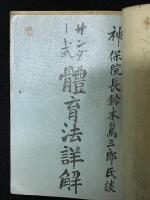 神保院長鈴木萬三郎氏談
サンダー
ト式
體育法詳解